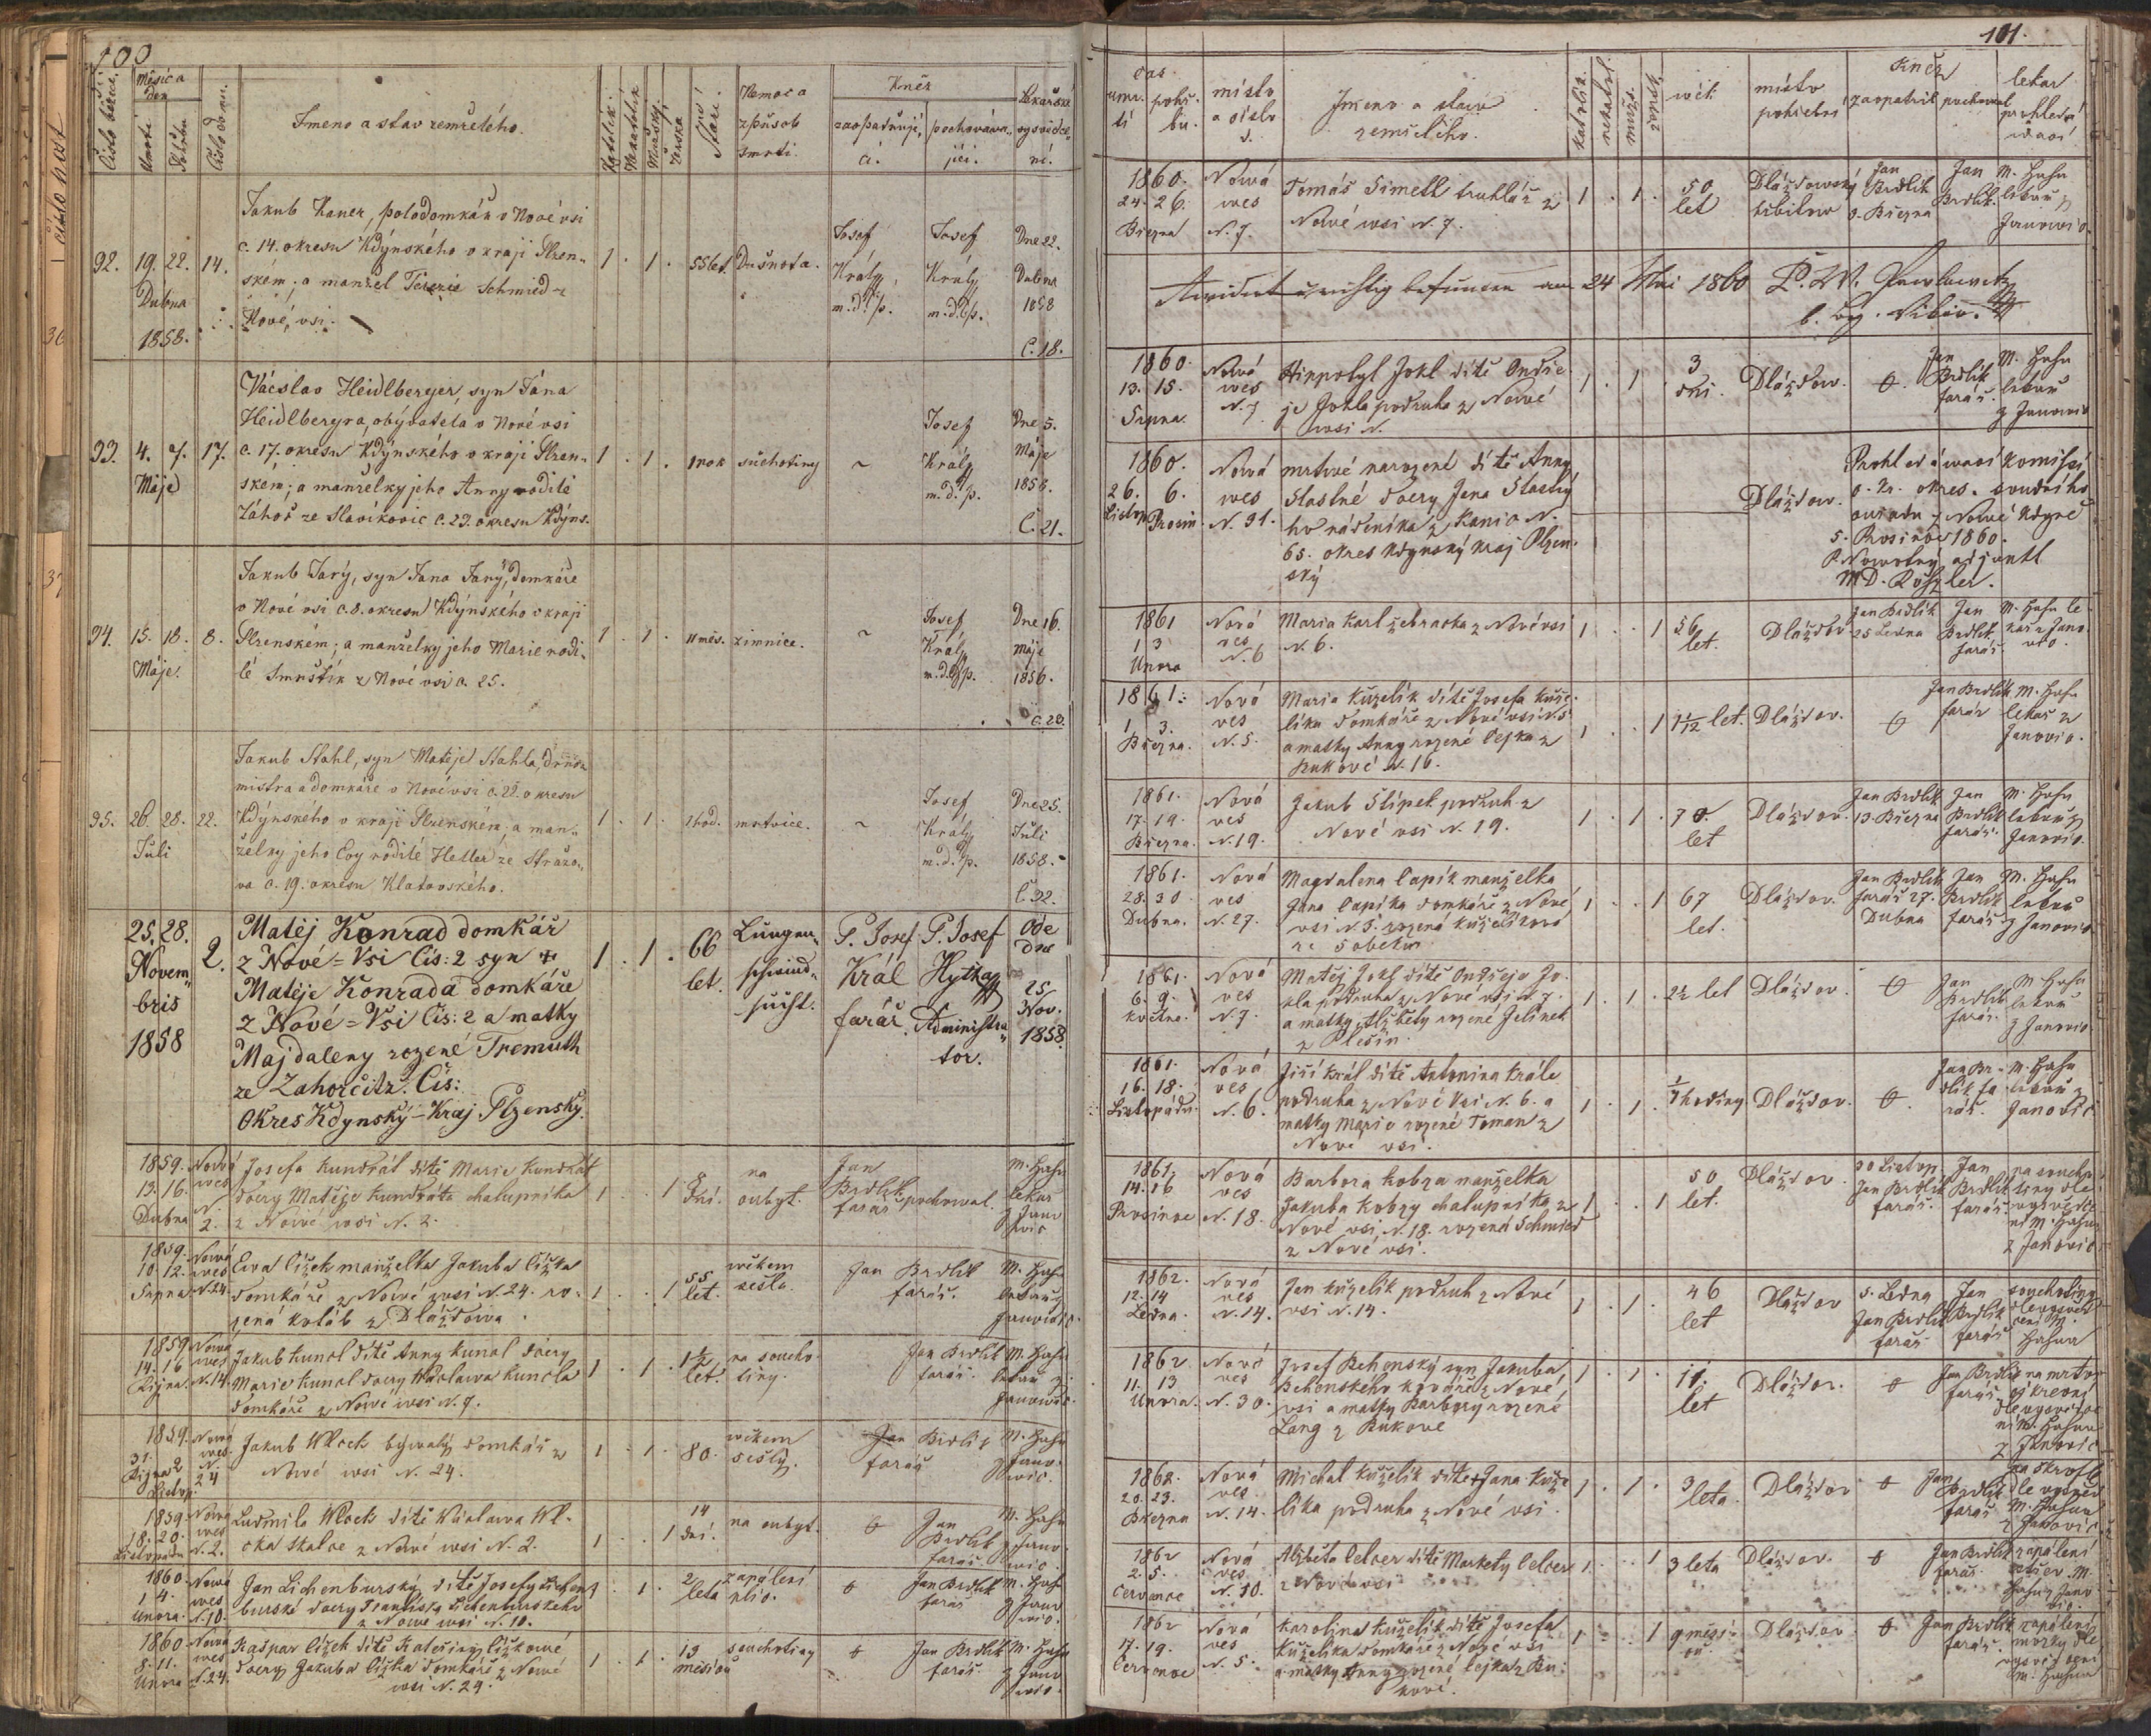 100
Číslo běžící.
Měsíc a den
Umrtí
Pohřbu
Číslo domu.
Jmeno a stav zemřelého.
Katolík.
Nekatolík
Mužský.
Ženská
Stáří.
Nemoc a
způsob
smrti.
Kněz
zaopatřující
pochovávající.
Lékařské
vysvědčení.
92. 19. 22. 14.
Dubna
1858.
Jakub Kaner, polodomkář v Nové vsi
c. 14. okresu Kdýnského v kraji Plzen-
ském; a manžel Terezie Schmied z
Nové vsi.
1 . 1 . 55 let. Dušnota.
Josef
Králý
m. d. p.
Josef
Králý
m. d. p.
Dne 22.
Dubna
1858
C. 18.
93. 4. 7. 17.
Máje
Vácslav Heidlberger, syn Jána
Heidlbergra, obývatela v Nové vsi
c. 17. okresu Kdýnského v kraji Plzen-
ském; a manželky jeho Anny rodilé
Záhoř ze Slavikovic c. 23. okresu Kdýns.
1 . 1 . 1 rok suchotiny ~
Josef
Králý
m. d. p.
Dne 5.
Máje
1858.
C. 21.
94. 15. 18. 8.
Máje.
Jakub Jarý, syn Jana Jarý, domkáře
v Nové vsi c. 8. okresu Kdýnského v kraji
Plzenském; a manželky jeho Marie rodi-
lé Smuštík z Nové vsi c. 25.
1 . 1 . 11 měs. zimnice. ~
Josef
Králý
m. d. p.
Dne 16.
máje
1856.
C. 20.
95. 26. 28. 22.
Juli
Jakub Stahl, syn Matěje Stahla,
mistra a domkáře v Nové vsi c. 22. okresu
Kdýnského v kraji Plzenském; a man-
želky jeho Evy rodilé Heller ze Stražo-
va c. 19. okresu Klatovského.
1 . 1 . 2 hod. mrtvice. ~
Josef
Králý
m. d. p.
Dne 25.
Juli
1858.
C. 32.
25. 28.
Novem-
bris
1858
2.
Matěj Konrad domkář
z Nové=Vsi Čis: 2 syn +
Matěje Konrada domkáře
z Nové=Vsi Čis: 2 a matky
Majdaleny rozené Tremuth
ze Zahorčitz. Čis:
Okres Kdynský – Kraj Plzenský.
1 . 1 . 66
let.
Lungen-
schwind-
sucht.
P. Josef
Král
farář.
P. Josef
Hytka
Administra-
tor.
Ode
dne
25
Nov.
1858.
1859.
13. 16.
Dubna
Nová
wes
N.
2.
Josefa Kundrát dítě Marie Kundrát
dcery Matěje Kundráta chalupníka
z Nowé wsi N. 2.
1 . . 1 8
dní.
na
oubyt.
Jan
Brdlík
farář
pochowal.
M. Hahn
lékař
z Jano
wic
1859.
10. 12.
Srpna
Nowá
wes
N. 24.
Ewa Čížek manželka Jakuba Čížka
domkáře z Nowé wsi N. 24. ro-
zená Koláb z Dlážďowa.
1 . . 1 55
let.
wěkem
sešla.
Jan Brdlík
farář.
M. Hahn
lekař z
Janowic.
1859
14. 16
Října.
Nowá
wes
N. 14.
Jakub Kuncl dítě Anny Kuncl dcery
Marie Kuncl dcery Wáclawa Kuncla
domkáře z Nowé wsi N. 7.
1 . 1 . 1½
let.
na soucho-
tiny.
Jan Brdlík
farář.
M. Hahn
lekař z
Janowic.
1859.
31.
Října 2
Listop.
Nowá
wes.
N.
24
Jakub Wlock býwalý domkář z
Nowé wsi N. 24.
1 . 1 . 80.
wěkem
sešlý.
Jan Brdlík
farář
M. Hahn
z Jano-
wic.
1859
18. 20.
Listopadu
Nowá
wes
N. 2.
Ludmila Wlock dítě Wáclawa Wl-
cka skalce z Nowé wsi N. 2.
1 . . 1 14
dní.
na oubyt.
Jan
Brdlík
farář
M. Hahn
z Jano-
wic.
1860
1. 4.
Unora.
Nowá
wes
N. 10.
Jan Lichenburský dítě Josefy Lichen
burské dcery Františka Lichenburského
z Nowé wsi N. 10.
1 . 1 . 2
leta
zapálení
plic.
Jan Brdlík
farář
M. Hahn
z Jano
wic.
1860
8. 11.
Unora
Nowá
wes
N. 24.
Kašpar Čížek dítě Kateřiny Čížkowé
dcery Jakuba Čížka domkáře z Nowé
wsi N. 24.
1 . 1 . 13
měsíců
souchotiny
Jan Brdlík
farář.
M. Hahn
z Jano
wic.
101.
čas
umr-
tí
pohř-
bu.
místo
a číslo
d.
Jmeno a staw
zemřelého.
katolík.
nekatol.
mužs.
žensk.
wěk
místo
pohřební
Kněz
zaopatril
pochowal
lekar
prohleda
wací
1860.
24. 26.
Března
Nowá
wes
N. 7.
Tomáš Simetl truhlář z
Nowé wsi N. 7.
1 . 1 . 50
let
Dlážďowský
hřbitow
Jan
Brdlík
8. Března
Jan
Brdlík.
M. Hahn
lekař z
Janowic.
richtig befunden am 24 Mai 1860
1860.
13. 15.
Srpna.
Nowá
wes
N. 7
Hippolyt Jokl dítě Ondře-
je Jokla podruha z Nowé
wsi N.
1 . 1 3
dni.
Dlážďow.
Jan
Brdlík
farář.
M. Hahn
lekař
z Janowic
1860.
26. 6.
Listop. Prosin.
Nowá
wes
N. 31.
mrtwé narozené dítě Anny
Slastné dcery Jana Slastný
ho nádeníka z Kanic N.
65. okres Kdynský kraj Plzen-
ský
Dlážďow.
Prohledáwací komissí
c. k. okres. soudního
ouřadu z Nowé Kdyně
5. Prosince 1860.
P. Nowotný adjunkt
MD.
1861
1 3
Unora
Nová
ves
N. 6
Maria Karl žebračka z Nové vsi
N. 6.
1 . . 1 56
let.
Dlážďov.
Jan Brdlík
25 Ledna
Jan
Brdlík
farář.
M. Hahn le-
kař z Jano-
vic.
1861.
1 3.
Března.
Nová
ves
N. 5.
Maria Kuželík dítě Josefa Kuže-
líka domkáře z Nové vsi N. 5
a matky Anny rozené Cejka z
Rukové N. 16.
1 . . 1 1 1/12 let. Dlážďov.
Jan Brdlík
farář
M. Hahn
lekař z
Janovic.
1861.
17. 19.
Března.
Nová
ves
N. 19.
Jakub Slípek podruh z
Nové vsi N. 19.
1 . 1 . 70.
let
Dlážďov.
Jan Brdlík
13. Března
Jan
Brdlík
farář.
M. Hahn
lekař z
Janovic.
1861.
28. 30
Dubna.
Nová
ves
N. 27.
Magdalena Čapík manželka
Jana Čapíka domkáře z Nové
vsi N. 5. rozená Kuželíková
1 . . 1 67
let.
Dlážďov.
Jan Brdlík
farář 27.
Dubna
Jan
Brdlík
farář
M. Hahn
lekař
z Janovic
1861.
6. 9.
Května.
Nová
ves
N. 7.
Matěj Jokl dítě Ondřeje Jo-
kla podruha z Nové vsi N. 7.
a matky Alžběty rozené Jelinek
z Plešin.
1 . 1 . 2½ let Dlážďov.
Jan
Brdlík
farář.
M. Hahn
lekař
z Janovic
1861.
16. 18.
Listopádu.
Nová
ves
N. 6.
Jiří Král dítě Antonina Krále
podruha z Nové Vsi N. 6. a
matky Marie rozené Toman z
Nové vsi.
1 . 1 . hodiny Dlážďov.
Jan Br-
dlík fa-
rář.
M. Hahn
lekař z
Janovic
1861.
14. 16
Prosince
Nová
ves
N. 18.
Barbora Kobza manželka
Jakuba Kobzy chalupníka z
Nové vsi N. 18. rozená Schmied
z Nové vsi.
1 . . 1 50
let.
Dlážďov.
30 Listop
Jan Brdlík
farář.
Jan
Brdlík
farář.
na soucho-
tiny dle
vysvědče-
ní M. Hahna
z Janovic
1862.
12. 14
Ledna.
Nová
ves
N. 14.
Jan Kuželík podruh z Nové
vsi N. 14.
1 . 1 . 46
let
Dlážďov
5. Ledna
Jan Brdlík
farář
Jan
Brdlík
farář
souchotiny
dle vysvěd
čení M.
Hahna
1862
11. 13
Unora.
Nová
ves
N. 30.
Josef Behenský syn Jakuba
Behenského kováře z Nové
vsi a matky Barbory rozené
Lang z Rukove
1 . 1 . 11.
let
Dlážďov.
Jan Brdlík
farář
na mrtvi
ci krevní
dle vysvědče
ní M. Hahna
z Janovic
1862.
20. 23.
Března
Nová
ves.
N. 14.
Michal Kuželík dítě Jana Kuže
líka podruha z Nové vsi.
1 . 1 . 3
leta.
Dlážďov
Jan
Brdlík
farář
na skrofle
dle vysvěd
M. Hahna
z Janovic.
1862
2. 5.
Července
Nová
ves
N. 10.
Alžběta Celver dítě Markety Celver
z Nové vsi
1 . . 1 3 leta Dlážďov.
Jan Brdlík
farář
zapálení
střev. M.
Hahn z Jano
vic.
1862
17. 19.
Července
Nová
ves
N. 5.
Karolina Kuželík dítě Josefa
Kuželíka domkáře z Nové vsi
a matky Anny rozené Cejka z Ru-
kové.
1 . . 1 9 měsí-
ců.
Dlážďov.
Jan Brdlík
farář.
zapálení
mozku dle
vysvědčení
M. Hahna